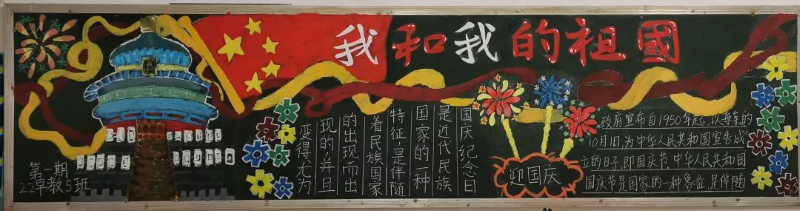 我和我的祖國
第一期
22早教5班
国庆纪念日
是近代民族
国家的一种
特征是伴随
着民族国家
的出现而出
现的并且
变得尤为
迎国庆
政府宣布自1950年起,以每年的
10月1日,为中华人民共和国宣告成
立的日子,即国庆节,中华人民共和国
国庆节是国家的一种象征,是伴随